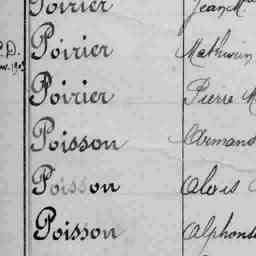 Poirier Jean M
Poirier Mathurin
Poirier Pierre M
Poisson Armand
Poisson Aloïs
Poisson Alphonse